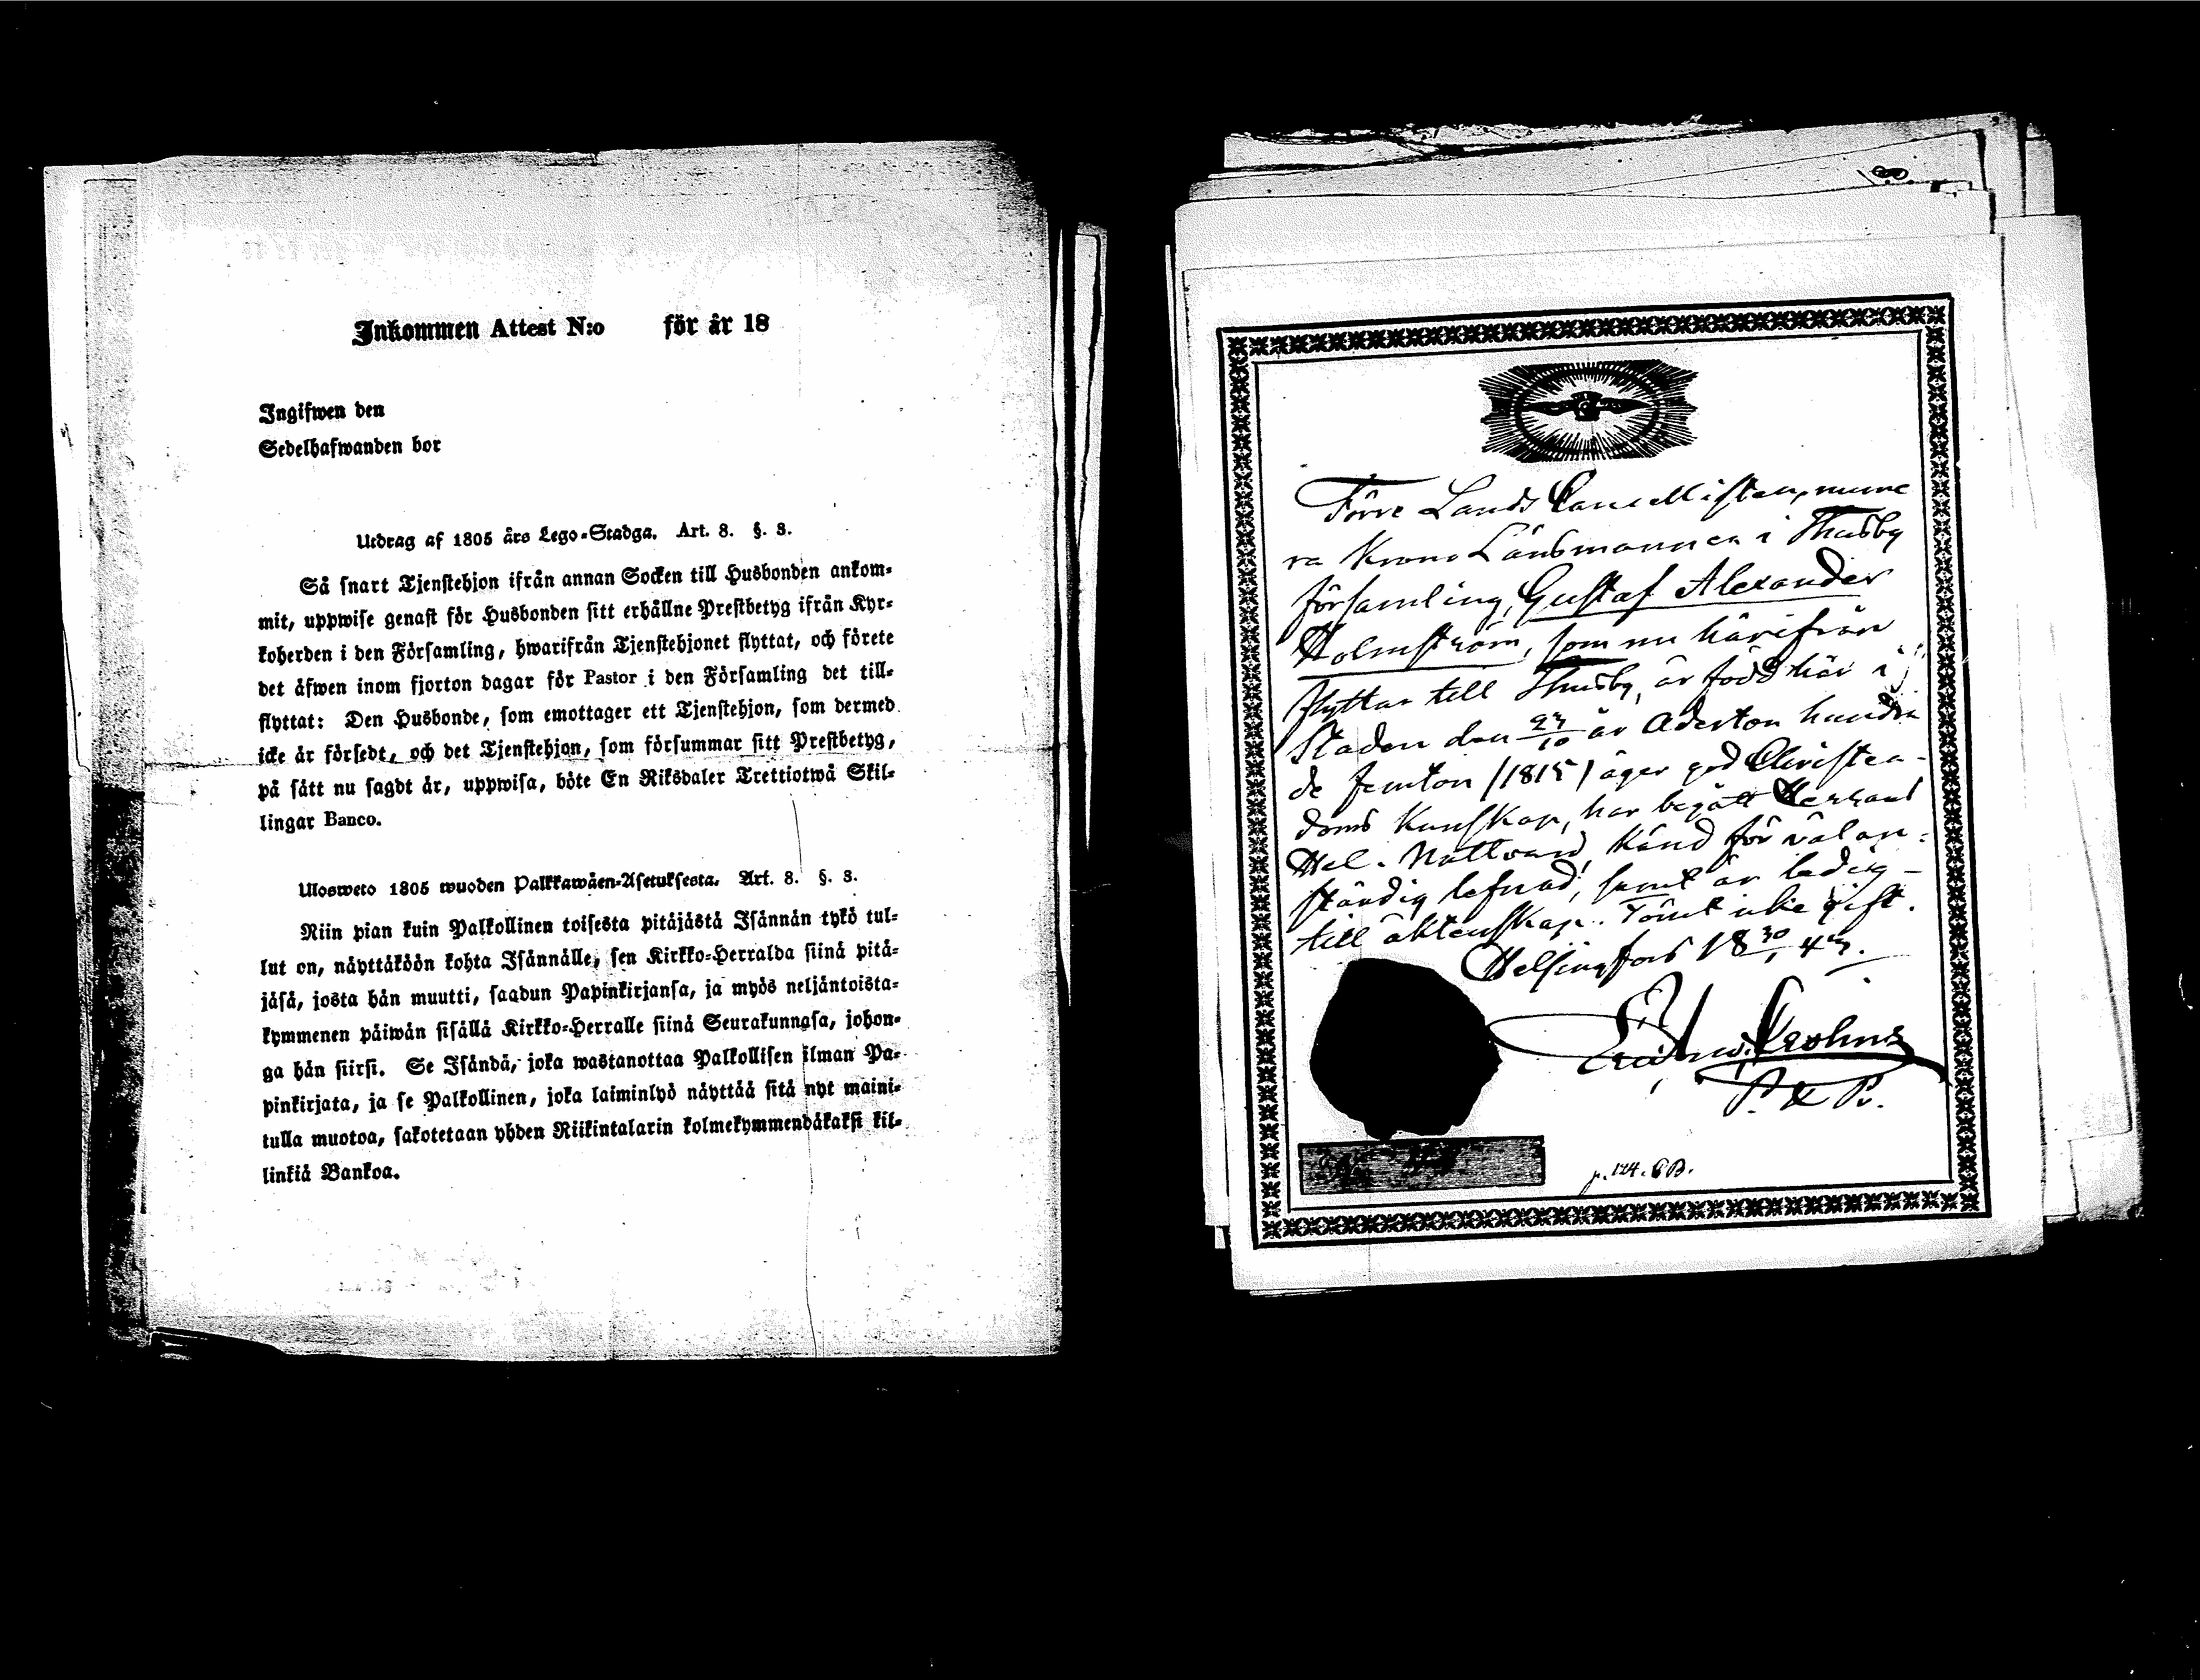 Inkommen Attest N:o för år 18
Ingifwen den
Sedelhafwanden bor
Utdrag af 1805 års Lego-Stadga. Art. 8. §. 3.
Så snart Tjenstehjon ifrån annan Socken till Husbonden ankom-
mit, uppwise genast för Husbonden sitt erhållne Prestbetyg ifrån Kyr-
koherden i den Församling, hwarifrån Tjenstehjonet flyttat, och förete
det äfwen inom fjorton dagar för Pastor i den Församling det till-
flyttat: Den Husbonde, som emottager ett Tjenstehjon, som dermed
icke är försedt, och det Tjenstehjon, som försummar sitt Prestbetyg,
på sätt nu sagdt är, uppwisa, böte En Riksdaler Trettiotwå Skil-
lingar Banco.
Ulosweto 1805 wuoden Palkkawäen-Asetuksesta. Art. 8. §. 3.
Niin pian kuin Palkollinen toisesta pitäjästä Isännän tykö tul-
lut on, näyttäköön kohta Isännälle, sen Kirkko-Herralda siinä pitä-
jäsä, josta hän muutti, saadun Papinkirjansa, ja myös neljäntoista-
kymmenen päiwän sisällä Kirkko-Herralle siinä Seurakunnasa, johon-
ga hän siirsi. Se Isändä, joka wastanottaa Palkollisen ilman Pa-
pinkirjata, ja se Palkollinen, joka laiminlyö näyttää sitä nyt maini-
tulla muotoa, sakotetaan yhden Riikintalarin kolmekymmendäkaksi kil-
linkiä Bankoa.
Förre Lands Cancellisten, nume
ra Krono Länsmannen i Thusby
församling, Gustaf Alexander
Holmström, som nu härifrån
flyttar till Thusby, är född här i
Staden den 23/10 år Aderton hundra
de femton (1815) äger god Christen-
doms Kunskap, har begått Herrans
Hel. Nattvard, känd för välan-
ständig lefnad, samt är ledig
till äktenskap. Tömt icke gift.
Helsingfors 18 30/1 43.
Crohns
P. & P.
p. 124. B.